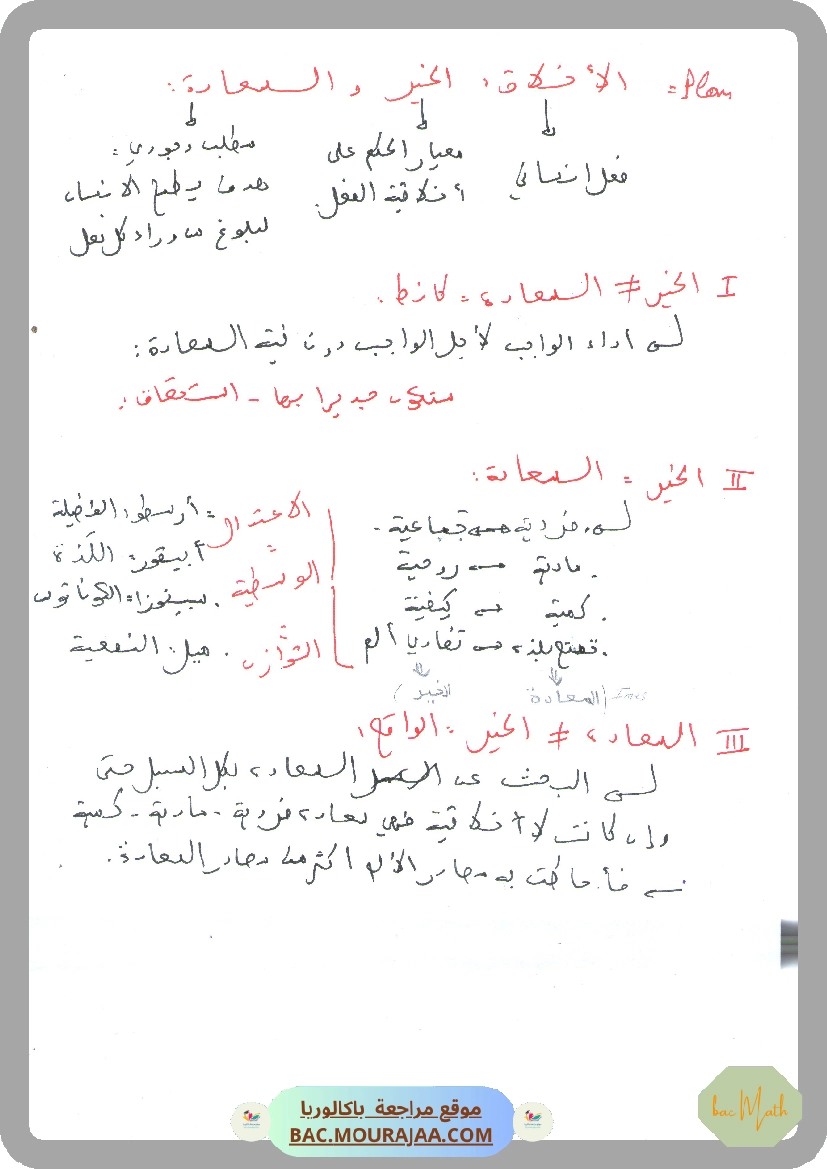 Plan = الأخلاق: الخير و السعادة:
فعل إنساني
معيار الحكم على
أخلاقية الفعل.
مطلب وجودي =
هدف يطمح الإنسان
لبلوغه من وراء كل فعل
I الخير ≠ السعادة = كانط.
أداء الواجب لأجل الواجب دون نية السعادة:
ستكون جديرا بها - استحقاق:
II الخير = السعادة:
فردية جماعية.
. مادية روحية
. كمية كيفية
. تمتع بلذة تفادي ألم
السعادة
الخير
الاعتدال
=
الوسطية
=
التوازن
= أرسطو: الفضيلة
أبيقور: اللذة
. سبينوزا = الكوناتوس
. ميل: النفعية
III السعادة ≠ الخير = الواقع:
البحث عن السعادة بكل السبل حتى
وإن كانت لا أخلاقية فهي سعادة فردية - مادية - كمية
به مصادر الألم أكثر من مصادر السعادة.
bac Math
موقع مراجعة باكالوريا
BAC.MOURAJAA.COM